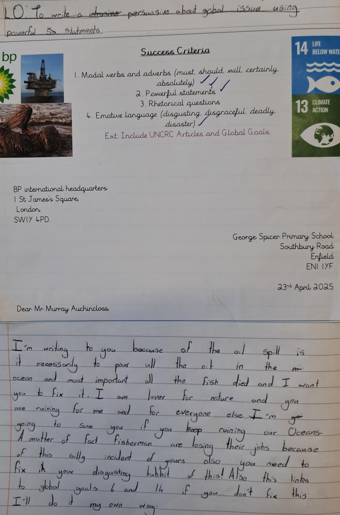 LO: To write a persuasive about global issue using
powerful statments.
bp
Success Criteria
1. Modal verbs and adverbs (must, should, will, certainly
absolutely)
2. Powerful statements
3. Rhetorical questions
4. Emotive language (disgusting, disgraceful, deadly,
disaster)
Ext: Include UNCRC Articles and Global Goals.
14 LIFE
BELOW WATER
13 CLIMATE
ACTION
BP international headquarters
1 St James's Square,
London,
SW1Y 4PD.
George Spicer Primary School
Southbury Road
Enfield
EN1 1YF
23rd April 2025
Dear Mr Murray Auchincloss,
I'm writing to you because of the oil spill is
it necessarily to pour all the oil in the
ocean and most important all the fish died and I want
you to fix it. I am lover for nature and you
are ruining for me and for everyone else I'm
going to sue you if you keep ruining our Oceans
A matter of fact fisherman are losing their jobs because
of this silly incident of yours also you need to
fix your disgusting habbit of this! Also this links
to global goals 6 and 14 if you don't fix this
I'll do it my own way.